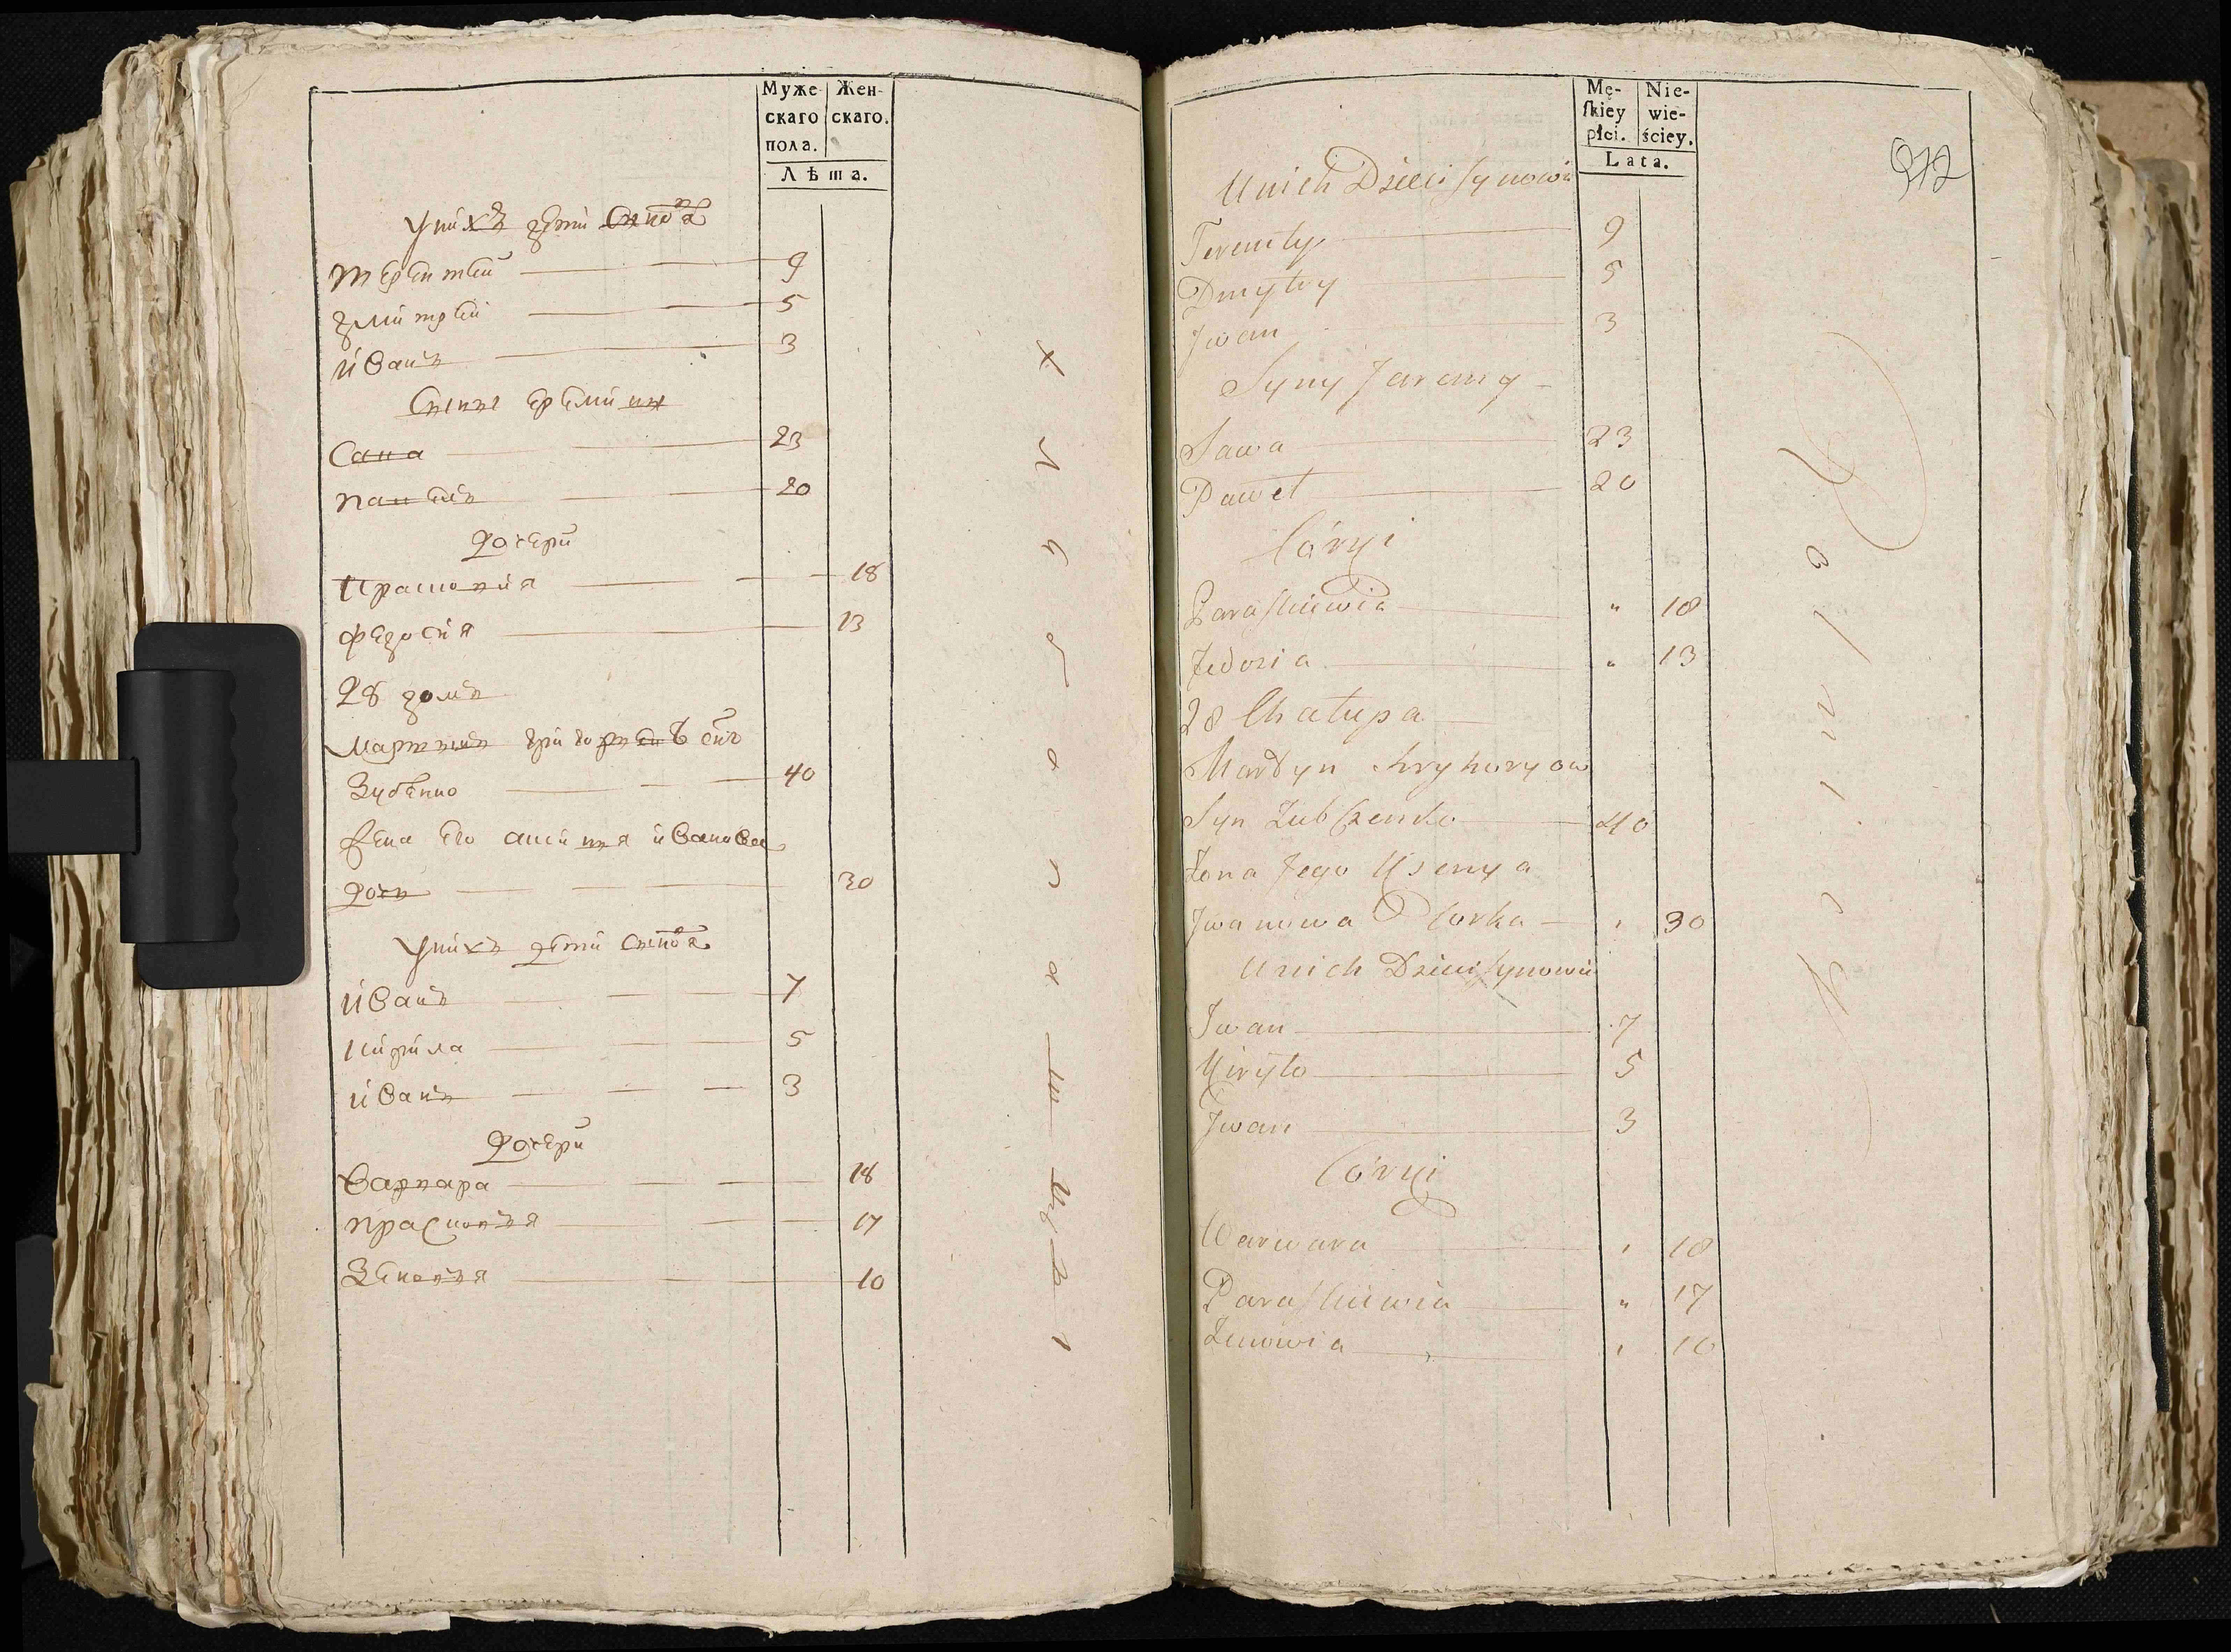 Муже- Жен-
скаго скаго.
пола.
Лѣта.
У нихъ дѣти сынова
Терентей 9
Дмитрей 5
Иванъ 3
Сыны Еремины
Сава 23
Павелъ 20
Дочери
Прасковия 18
Федосия 13
28 домъ
Мартынъ Григорьевъ снъ
Зубенко 40
Жена его Иванова
дочь 30
У нихъ дѣти сынова
Иванъ 7
Кирила 5
Иванъ 3
Дочери
Варвара 18
Прасковья 17
Зеновья 10
Mę- Nie-
skiey wie-
płci. ściey.
Lata.
272
U nich Dzieci Synowie
Terenty 9
Dmytry 5
Jwan 3
Syny Jaremy
Sawa 23
Paweł 20
Córki
Paraskiewia " 18
Fedosia " 13
28 Chałupa
Mardyn Hryhoryow
Syn Zubczenko 40
Żona Jego
Jwanowa Corka " 30
U nich Dzieci Synowie
Jwan 7
Kiryło 5
Jwan 3
Córki
Warwara " 18
Paraskiewia " 17
Zenowia " 10